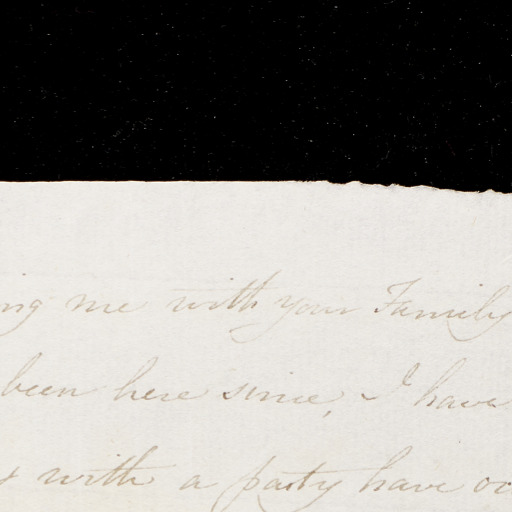 ing me with your Family
been here since, I have
with a party have